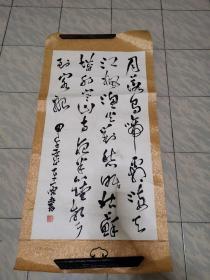 月落烏啼霜滿天
江楓漁火對愁眠姑蘇
城外寒山寺夜半鐘聲
到客船